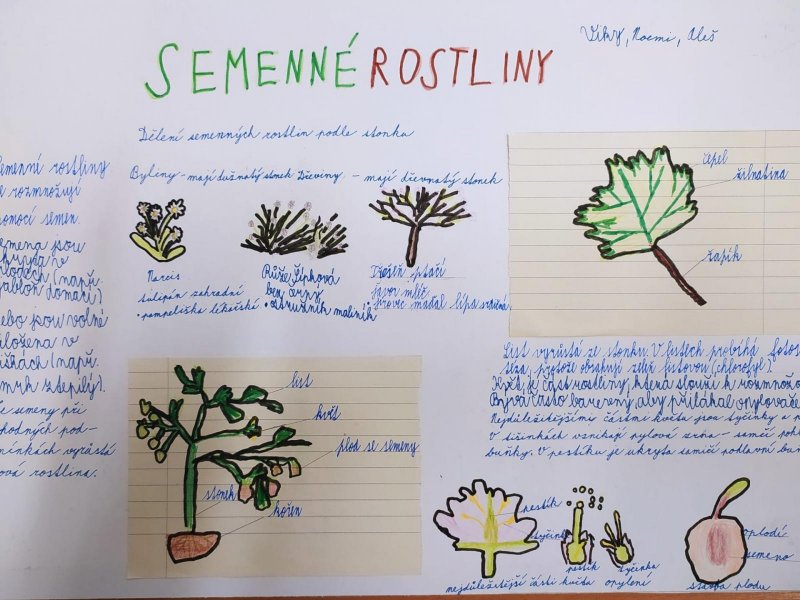 SEMENNÉ ROSTLINY
Viky, Noemi, Aleš
Dělení semenných rostlin podle stonku
Byliny - mají dužnatý stonek Dřeviny - mají dřevnatý stonek
Narcis
tulipán zahradní
• pampeliška lékařská
Růže Šípková
bez černý
• ostružník maliník
ptačí
javor mléč
• jírovec maďal lípa srdčitá
emenné rostliny
e rozmnožují
omocí semen.
emena jsou
kryta v
lodech (např.
jabloň domácí)
ebo jsou volně
uložena v
iškách (např.
mrk ztepilý).
e semeny při
hodných pod-
mínkách vyrůstá
ová rostlina.
čepel
žilnatina
řapík
List vyrůstá ze stonku. V listech probíhá fotos
téza, protože obsahují zeleň listovou (chlorofyl).
Květ je část rostliny, která slouží k rozmnožo
Bývá často barevný, aby přilákal opylovače
Nejdůležitějšími částmi květu jsou tyčinky a p
V tičinkách vznikají pylová zrna - samčí poh
buňky. V pestíku je ukryta samičí pohlavní buň
list
květ
plod se semeny
stonek
kořen
pestík
tyčinka
pestík
tyčinka
nejdůležitější části květu
opylení
oplodí
semeno
stavba plodu